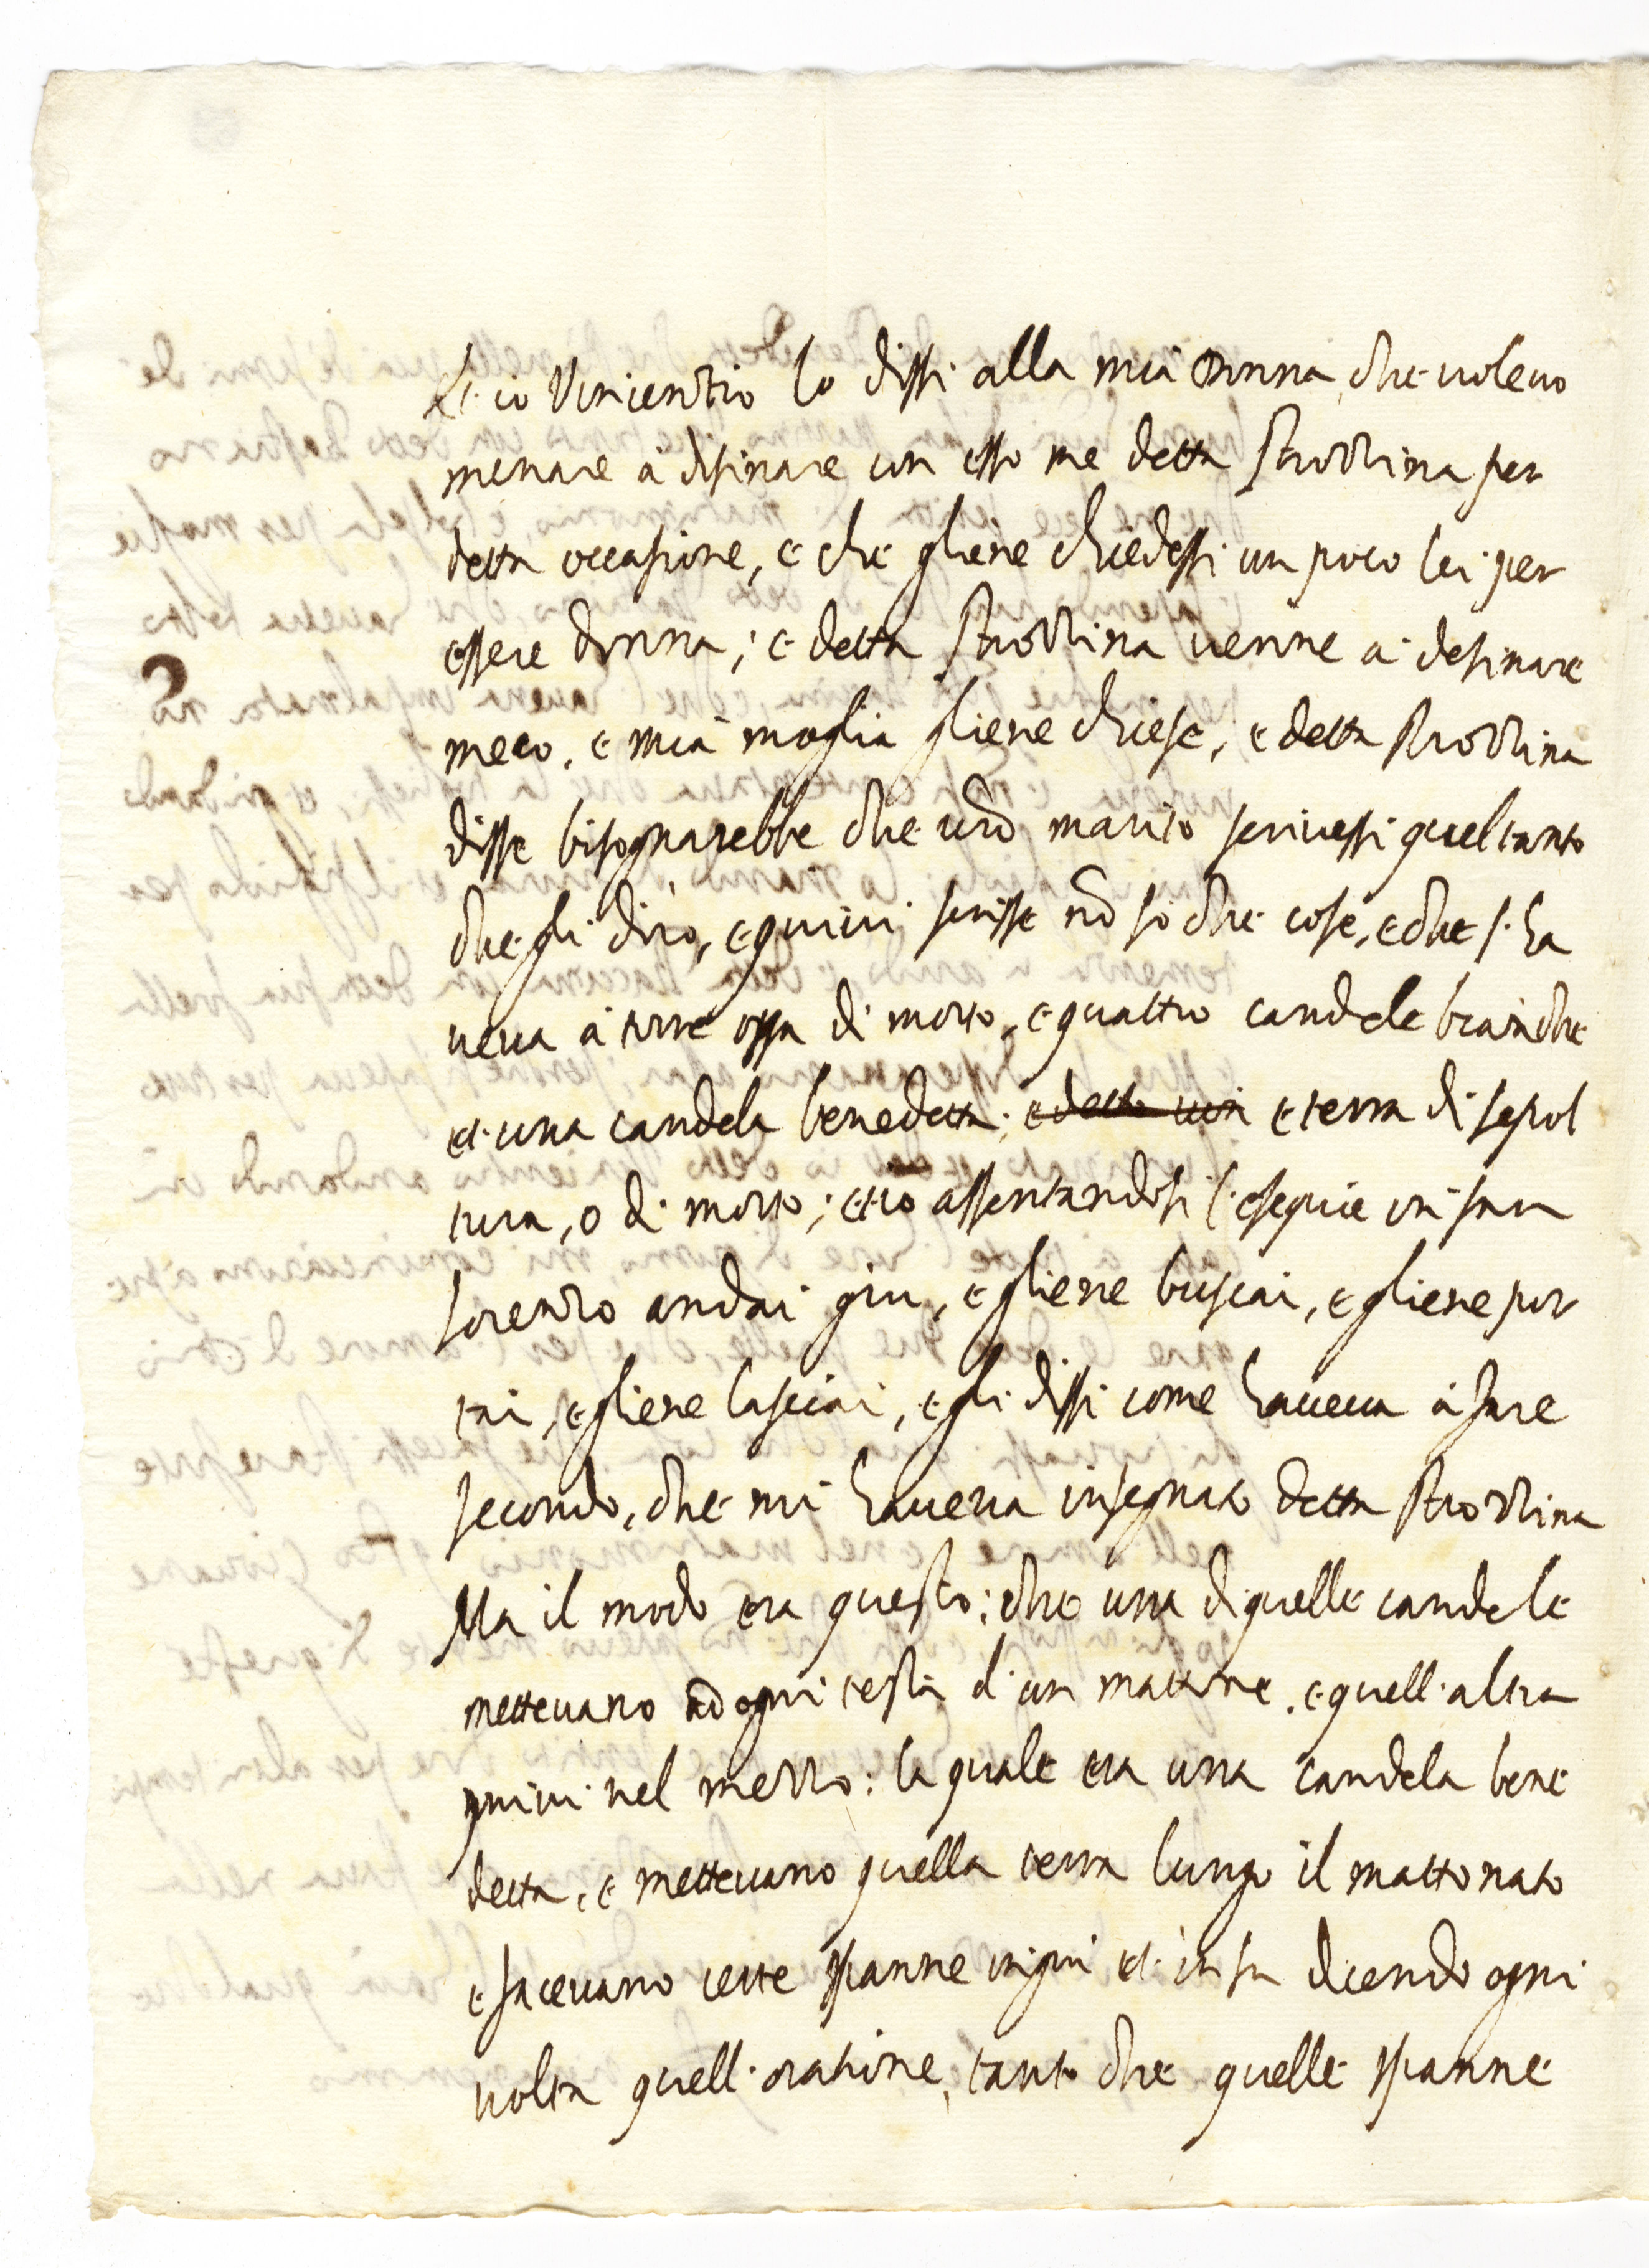 Et io Vincentio lo dissi alla mia donna, che volevo
menare a disinare con esso me detta Strozzina per
detta occasione, e che gliene chiedessi un poco lei per
essere donna; e detta Strozzina venne a desinare
meco, e mia moglia gliene chiese, e detta Strozzina
disse bisognarebbe che vr̃o marito scrivessi quel tanto
che gli dirò, e quivi scrisse nõ so che cose, e che s'ha
veva a torre ossa di morto, e quattro candele bianche
et una candela benedetta; e detto con e terra di sepol
tura, o di morto; et io assentandosi l'esequie in san
lorenzo andai giu, e gliene buscai, e gliene por
tai, e gliene lasciai, e gli dissi come haveva a fare
secondo, che mi haveva insegnato detta Strozzina
Ma il modo era questo: che una di quelle candele
mettevano ad ogni testa d'un mattone, e quell'altra
quivi nel mezzo: la quale era una candela bene
detta, e mettevano quella terra lungo il mattonato
e facevano certe spanne in giu et in su dicendo ogni
volta quell'oratione, tanto che quelle spanne